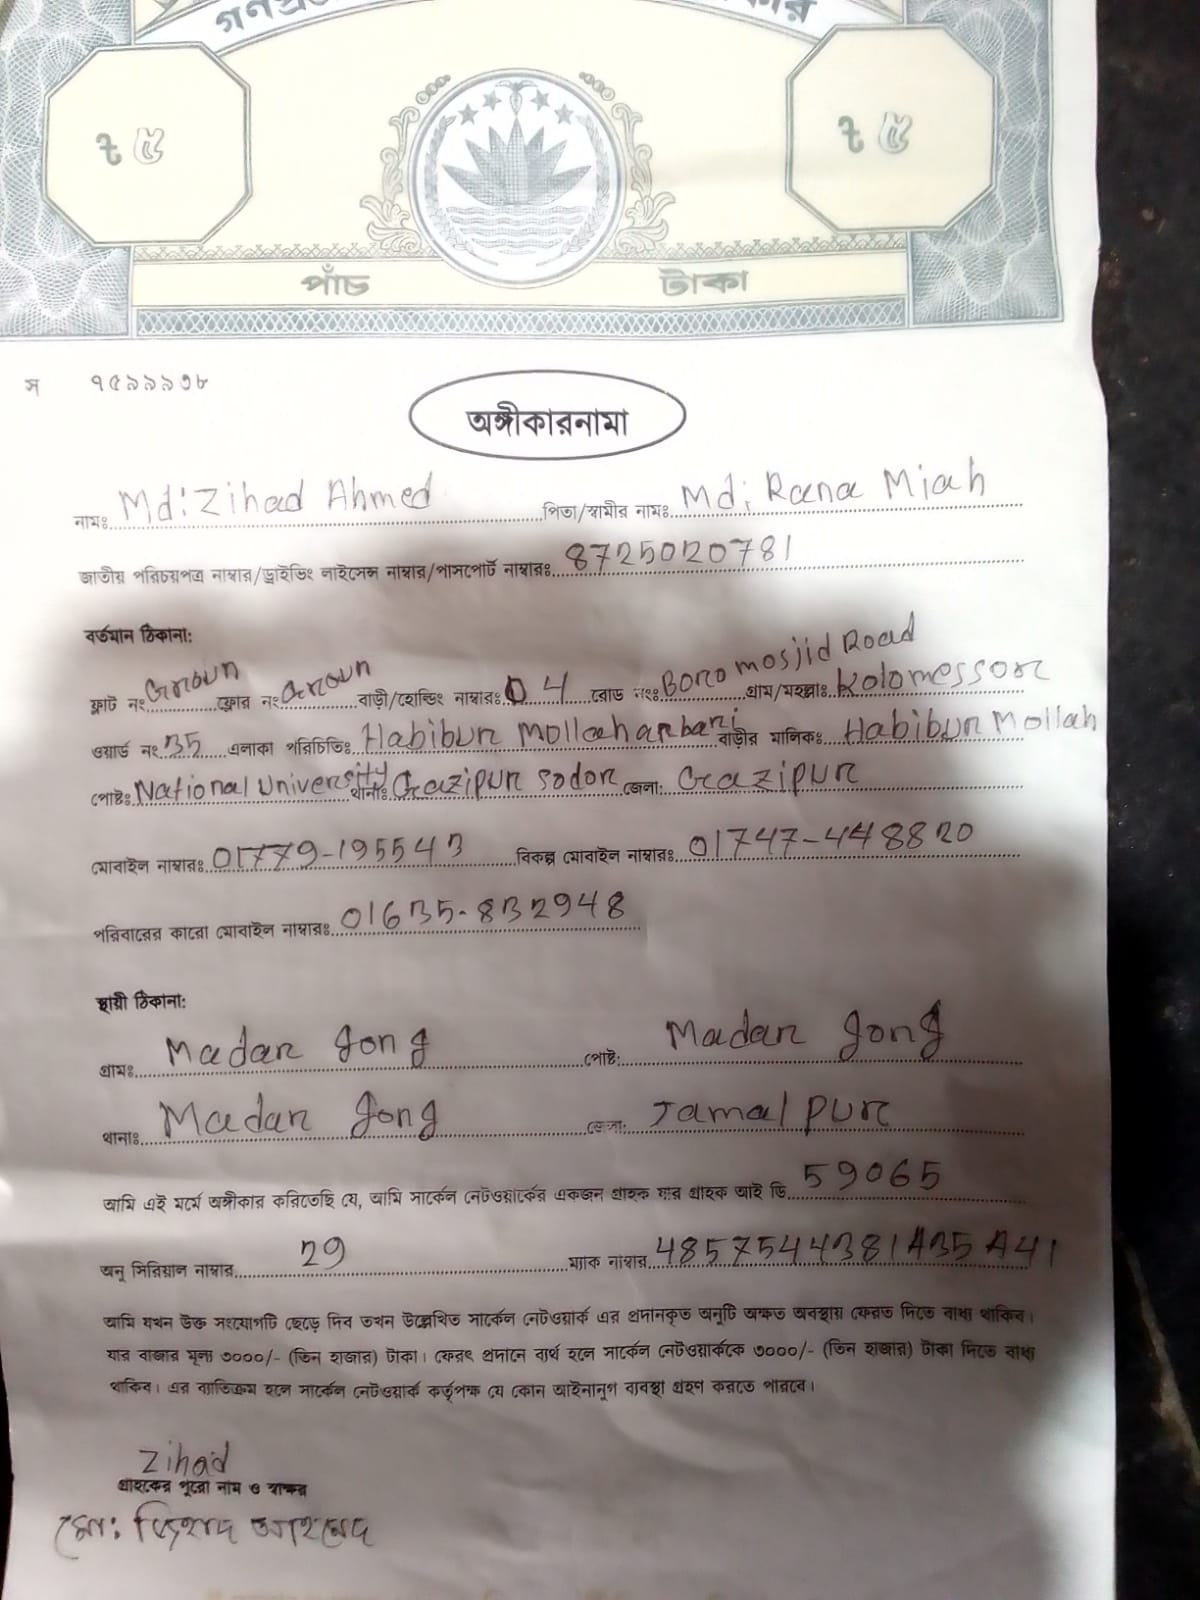 ৳ ৫ ৳ ৫
পাঁচ টাকা
স ৭৫৯৯৯৩৮
অঙ্গীকারনামা
নামঃ Md: Zihad Ahmed পিতা/স্বামীর নামঃ Md: Rana Miah
জাতীয় পরিচয়পত্র নাম্বার/ড্রাইভিং লাইসেন্স নাম্বার/পাসপোর্ট নাম্বারঃ 8725020781
বর্তমান ঠিকানা:
ফ্লাট নং Groun ফ্লোর নং Groun বাড়ী/হোল্ডিং নাম্বারঃ 04 রোড নংঃ Boro mosjid Road গ্রাম/মহল্লাঃ Kolomessor
ওয়ার্ড নং 35 এলাকা পরিচিতিঃ Habibur Mollahar bari বাড়ীর মালিকঃ Habibur Mollah
পোষ্টঃ National University থানাঃ Gazipur Sodor জেলা: Gazipur
মোবাইল নাম্বারঃ 01779-195543 বিকল্প মোবাইল নাম্বারঃ 01747-448820
পরিবারের কারো মোবাইল নাম্বারঃ 01635-832948
স্থায়ী ঠিকানা:
গ্রামঃ Madar gong পোষ্ট: Madar gong
থানাঃ Madar gong জেলা: Jamalpur
আমি এই মর্মে অঙ্গীকার করিতেছি যে, আমি সার্কেল নেটওয়ার্কের একজন গ্রাহক যার গ্রাহক আই ডি 59065
অনু সিরিয়াল নাম্বার 29 ম্যাক নাম্বার 4857544381A35A41
আমি যখন উক্ত সংযোগটি ছেড়ে দিব তখন উল্লেখিত সার্কেল নেটওয়ার্ক এর প্রদানকৃত অনুটি অক্ষত অবস্থায় ফেরত দিতে বাধ্য থাকিব।
যার বাজার মূল্য ৩০০০/- (তিন হাজার) টাকা। ফেরৎ প্রদানে ব্যর্থ হলে সার্কেল নেটওয়ার্ককে ৩০০০/- (তিন হাজার) টাকা দিতে বাধ্য
থাকিব। এর ব্যতিক্রম হলে সার্কেল নেটওয়ার্ক কর্তৃপক্ষ যে কোন আইনানুগ ব্যবস্থা গ্রহণ করতে পারবে।
Zihad
গ্রাহকের পুরো নাম ও স্বাক্ষর
মো: জিহাদ আহমেদ